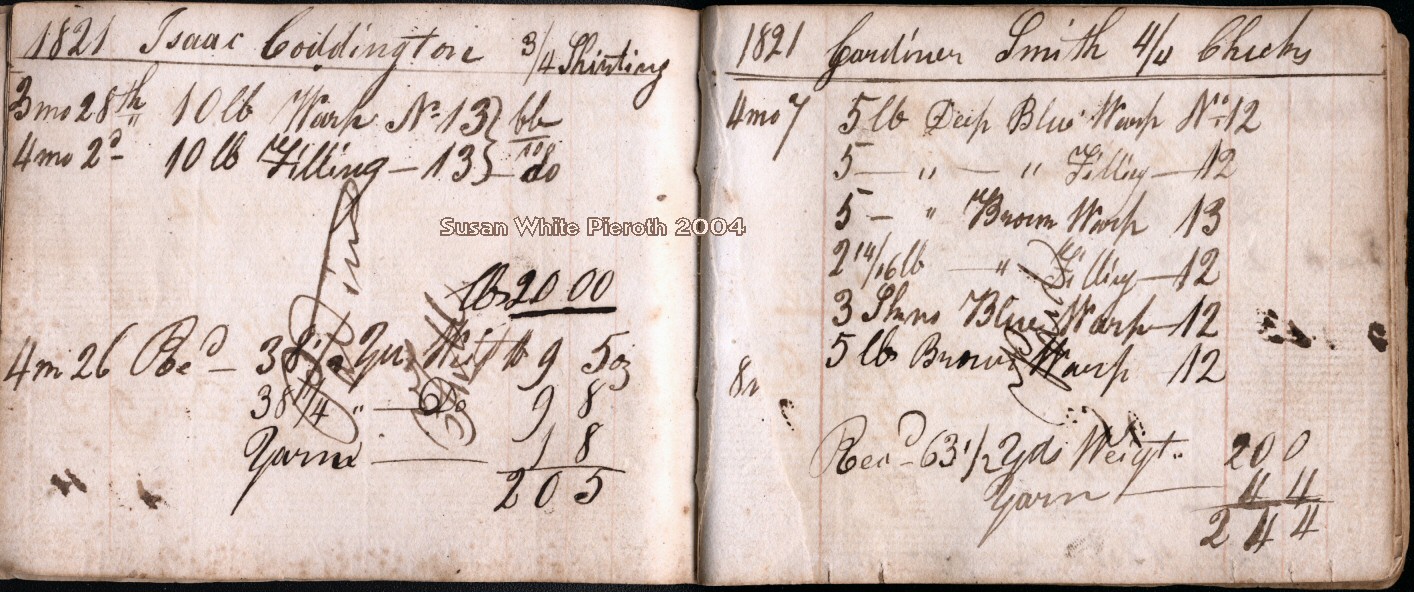 1821 Isaac Coddington 3/4 Shirting
3 mo 28th 10 lb Warp No 13 } bb
4 mo 2d - 10 lb Filling - 13 } do
lbs 20 00
4 m 26 Recd - 38 1/2 Yds Weight 9 5oz
38 1/4 " - Do 9 8
Yarn 1 8
20 5
1821 Gardiner Smith 4/4 Checks
4 mo 7 5 lb Deep Blue Warp No 12
5 - " - " Filling - 12
5 - " Brown Warp 13
2 14/16 lb - " Filling - 12
3 Skns Blue Warp - 12
5 lbs Brown Warp 12
Recd - 63 1/2 yds Weigt. 20 0
Yarn 4 4
24 4
Susan White Pieroth 2004